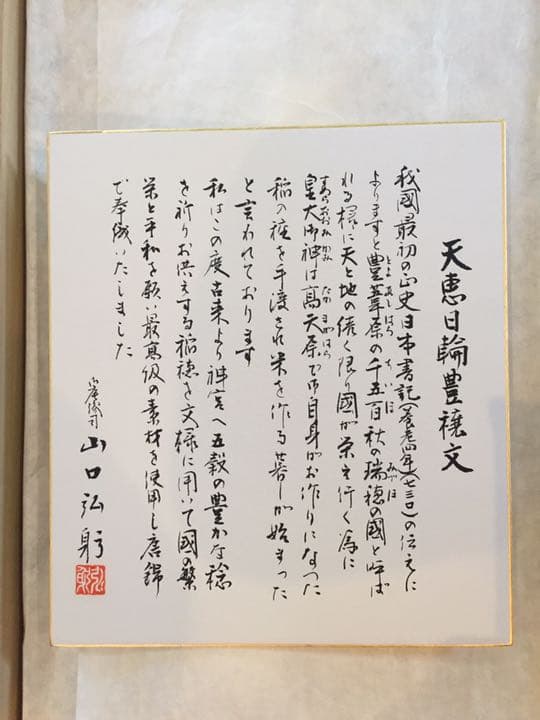 天恵日輪豊穣文
我國最初の正史日本書記(養老四年(七二〇)の伝えに
よりますと豊葦原の千五百秋の瑞穂の國と呼ば
れる様に天と地の続く限り國が栄え行く為に
皇大御神は高天原で御自身がお作りになった
稲の穂を手渡され米を作る暮しが始まった
と言われております
私はこの度古来より神宮へ五穀の豊かな稔
を祈りお供えする稲穂を文様に用いて國の繁
栄と平和を願い最高級の素材を使用し唐錦
で奉織いたしました
山口弘躬